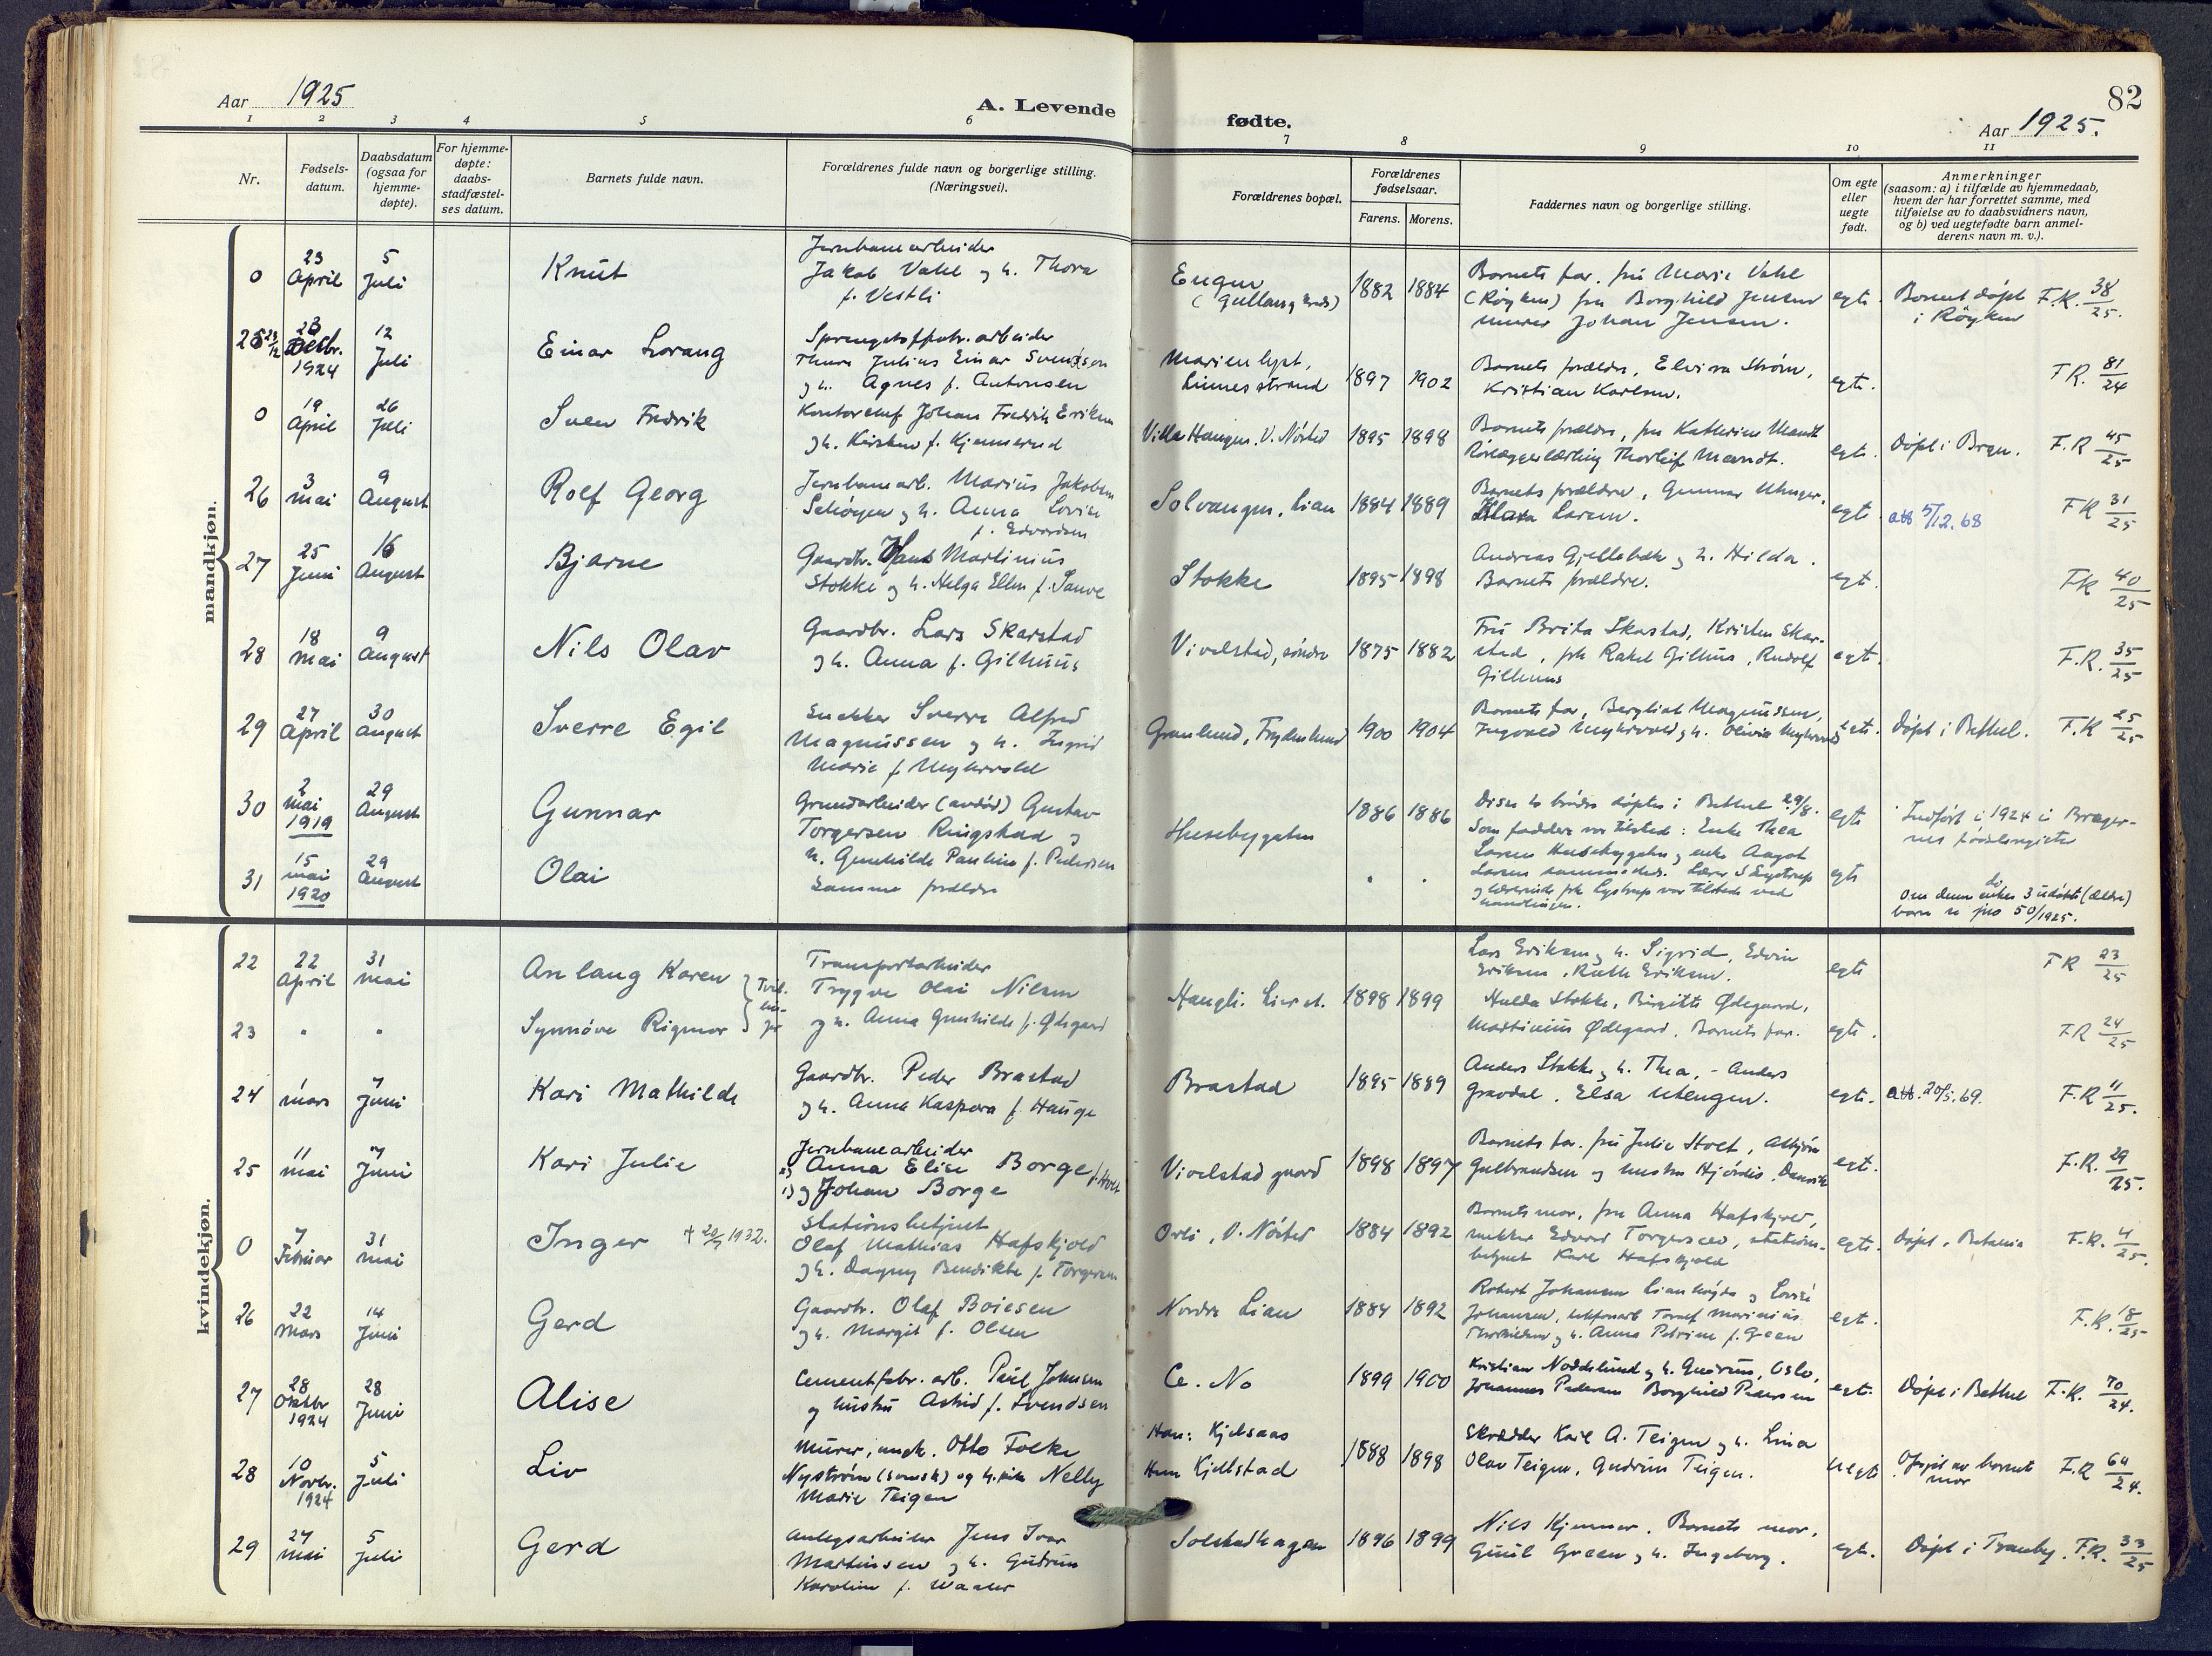 82
Aar 1925
A. Levende
fødte.
Aar 1925.
1 2 3 4 5 6 7 8 9 10 11
Nr.
Fødsels-
datum.
Daabsdatum
(ogsaa for
hjemme-
døpte).
For hjemme-
døpte:
daabs-
stadfæstel-
ses datum.
Barnets fulde navn.
Forældrenes fulde navn og borgerlige stilling.
(Næringsvei).
Forældrenes bopæl.
Forældrenes
fødselsaar.
Farens. Morens.
Faddernes navn og borgerlige stilling.
Om egte
eller
uegte
født.
Anmerkninger
(saasom: a) i tilfælde av hjemmedaab,
hvem der har forrettet samme, med
tilføielse av to daabsvidners navn,
og b) ved uegtefødte barn anmel-
derens navn m. v.).
mandkjøn.
0
23
April
5
Juli
Knut
Jernbanearbeider
Jakob Vahl og h. Thora
f. Vestli
1882 1884
Barnets far. fru Marie Vahl
(Røyken) fru Borghild Jensen
murer Johan Jensen.
egte.
Barnet døpt
i Røyken
F.K. 38/25.
25
23
Decbr.
1924
12
Juli
Einar Lorang
Sprengstoffabr. arbeider
Thure Julius Einar Svendsen
og h. Agnes f. Antonsen
Marienlyst,
Linnesstrand
1897 1902
Barnets forældre, Elvira Strøm,
Kristian Karlsen.
egte.
F.R. 81/24
0
19
April
26
Juli
Sven Fredrik
Kontorchef Johan Fredrik Eriksen
og h. Kirsten f. Kjennerud
Villa Haugen. V. Nøsted
1895 1898
Barnets forældre, fru Kathrine Mandt
Rørlæggerlærling Thorleif Mandt.
egte.
Døpt i Brgn.
F.R 45/25
26
3
mai
9
August
Rolf Georg
Jernbanearb. Marius Jakobsen
Schøyen og h. Anna Lovise
f. Edvardsen
Solvangen, Lian
1884 1889
Barnets forældre, Gunnar
Klara Larsen.
egte
att 5/12.68
F.K 31/25
27
25
Juni
16
August
Bjarne
Gaardbr. Hans Martinius
Stokke og h. Helga Ellen f. Sauve
Stokke
1895 1898
Andreas Gjellebæk og h. Hilda.
Barnets forældre.
egt.
FK 40/25
28
18
mai
9
August
Nils Olav
Gaardbr. Lars Skarstad
og h. Anna f. Gilhuus
Vivelstad, søndre
1875 1882
Fru Brita Skastad, Kristen Skar-
stad, frk Rakel Gilhus, Rudolf
Gilhuus
egt.
F.R. 35/25
29
27
April
30
August
Sverre Egil
Snekker Sverre Alfred
Magnussen og h. Ingrid
Marie f Myhrvold
Granlund, Frydenlund
1900 1904
Barnets far, Bergliot Magnussen,
Ingvald Myhrvold og h. Olivia Myhrvold
egte.
Døpt i Bethel.
F.K 25/25
30
2
Mai
1919
29
August
Gunnar
Grundarbeider (avdød) Gustav
Torgersen Ringstad og
h. Gunhilde Pauline f. Pedersen
Husebygaten
1886 1886
Disse to brødre døptes i Bethel 29/8.
Som faddere var tilsted: Enke Thea
Larsen Husebygaten og enke Aagot
egte
Indført i 1924 i Brager-
nes fødselregister
31
15
mai
1920
29
August
Olai
Samme forældre
Larsen sammesteds. Lærer S Lystrup
og lærerinde frk Lystrup var tilstede ved
handlingen.
egte
do
Om denne enkes 3 udøbte (ældre)
barn se jno 50/1925.
kvindekjøn.
22
22
April
31
mai
Anlaug Karen
Tvil-
lin-
ger
Transportarbeider
Trygve Olai Nilsen
og h. Anna Gunhilde f. Ødegaard
Haugli. Lier st.
1898 1899
Lars Eriksen og h. Sigrid, Edvin
Eriksen, Ruth Eriksen.
egte
F R 23/25
23
"
"
Synnøve Rigmor
Hulda Stokke, Birgitte Ødegaard,
Martinius Ødegaard, Barnets far.
egte.
F.R 24/25
24
1
mars
7
Juni
Kari Mathilde
Gaardbr. Peder Brastad
og h. Anna Kaspara f. Hauge
Brastad
1895 1889
Anders Stokke og h. Thea, - Anders
Gravdal, Elsa Utengen.
egte.
att. 20/5.69.
F.R 11/25.
25
11
mai
7
Juni
Kari Julie
Jernbanearbeider
2) Anna Elise Borge f. Hvet
1) og Johan Borge
Vivelstad gaard
1898 1897
Barnets far. fru Julie Hvet, Asbjørn
Gulbrandsen og hustru Hjørdis. Damvik
egt.
F.R. 29/25.
0
7
Februar
31
mai
Inger + 20/7 1932.
Stationsbetjent
Olaf Mathias Hafskjold
og h. Dagny Bendikte f. Torgersen
Orli, V. Nøsted
1884 1892
Barnets mor, fru Anna Hafskjold,
snekker Edvard Torgersen, stations-
betjent Karl Hafskjold
egte.
Døpt. Betania
F.R. 4/25.
26
22
Mars
14
Juni
Gerd
Gaardbr. Olaf Boiesen
og h. Margit f. Olsen
Nordre Lian
1884 1892
Robert Johansen Lianhøyda og Lovise
Johansen, telefonarb Tomas Marinius
Thorkildsen og h. Anna Petrine f. Green
egt.
F.K. 18/25
27
28
Oktbr
1924
28
Juni
Alise
Cementfabr. arb. Paul Johnsen
og hustru Astrid f. Svendsen
Ce. No
1899 1900
Kristian Noddelund og h. Gudrun, Oslo,
Johannes Pedersen Borghild Pedersen
egt.
Døpt i Bethel
F.K. 70/24.
28
10
Novbr.
1924
5
Juli
Liv
Murer, ungk. Otto Folke
Nystrøm (svensk) og h. pike Nelly
Marie Teigen
Han: Kjelsaas
Hun Kjellstad
1888 1898
Skrædder Karl A. Teigen og h. Lina
Olav Teigen, Gudrun Teigen.
Uegte
Opgit av barnets
mor
F.R 64/24.
29
27
mai
5
Juli
Gerd
Anlegsarbeider Jens Ivar
Martinsen og h. Gudrun
Karoline f. Waaler
Solstadhagen
1896 1899
Nils Kjenner. Barnets mor.
Guul Green og h. Ingeborg.
egt.
Døpt i Tranby.
F.R. 33/25